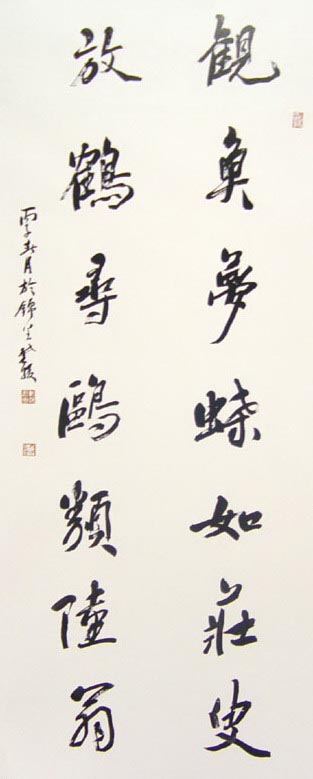 観魚夢蝶如莊叟
放鶴尋鷗類陸翁
丙子春月於錦